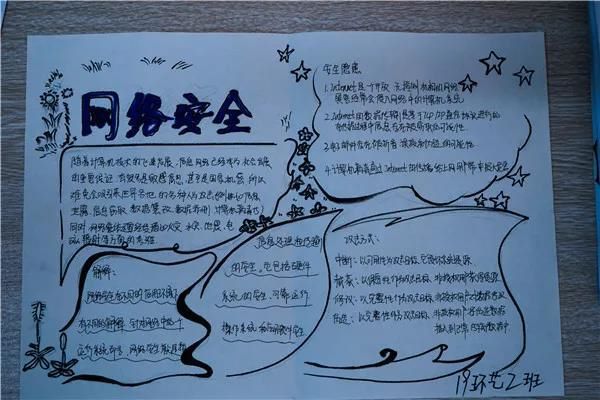 网络安全
随着计算机技术的飞速发展，信息网络已经成为社会发展
的重要保证。有很多是敏感信息，甚至是国家机密，所以
难免会吸引来自世界各地的各种人为攻击(例如信息
泄露、信息窃取、数据篡改、数据删添、计算机病毒等)
同时，网络实体还要经受诸如水灾、火灾、地震、电
磁辐射等方面的考验。
解释:
网络安全在不同的
有不同的解释。针对网络中的一个
运行系统而言，网络安全就是指
信息处理和传输
的安全。它包括硬件
系统的安全、可靠运行
操作系统和应用软件安全
安全隐患
1.Internet是一个开放、无控制机构的网络，
黑客经常会侵入网络中的计算机系统
2.Internet的数据传输是基于TCP/IP通信协议进行的
4.计算机病毒通过Internet的传播给上网用户带来极大危害
攻击方式:
中断:以可用性作为攻击目标，它毁坏系统资源
窃听:以保密性作为攻击目标，非授权用户
修改:以完整性作为攻击目标，非授权用户
伪造:以完整性作为攻击目标，非授权用户将伪造的数据
插入到正常传输的数据中
19环艺2班